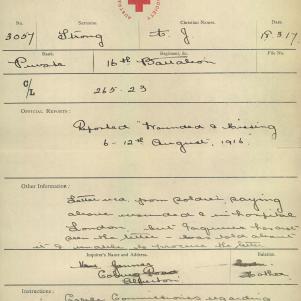 AUSTRALIAN
SOCIETY
No. Surname. Christian Names.
3057 Strong J
Rank. Regiment, &c. File No.
Private 16th Battalion
C/L 265.23
OFFICIAL REPORTS:
Reported "Wounded & Missing
6-12th August, 1916.
Other Information:
Letter recd. from soldier, saying
above wounded & in hospital
London, but
the letter told about
it & unable to procure the letter
Inquirer's Name and Address. Relation.
Mrs
Coburg Road
Alberton. Mother
Instructions:
Cable Commissioners regarding